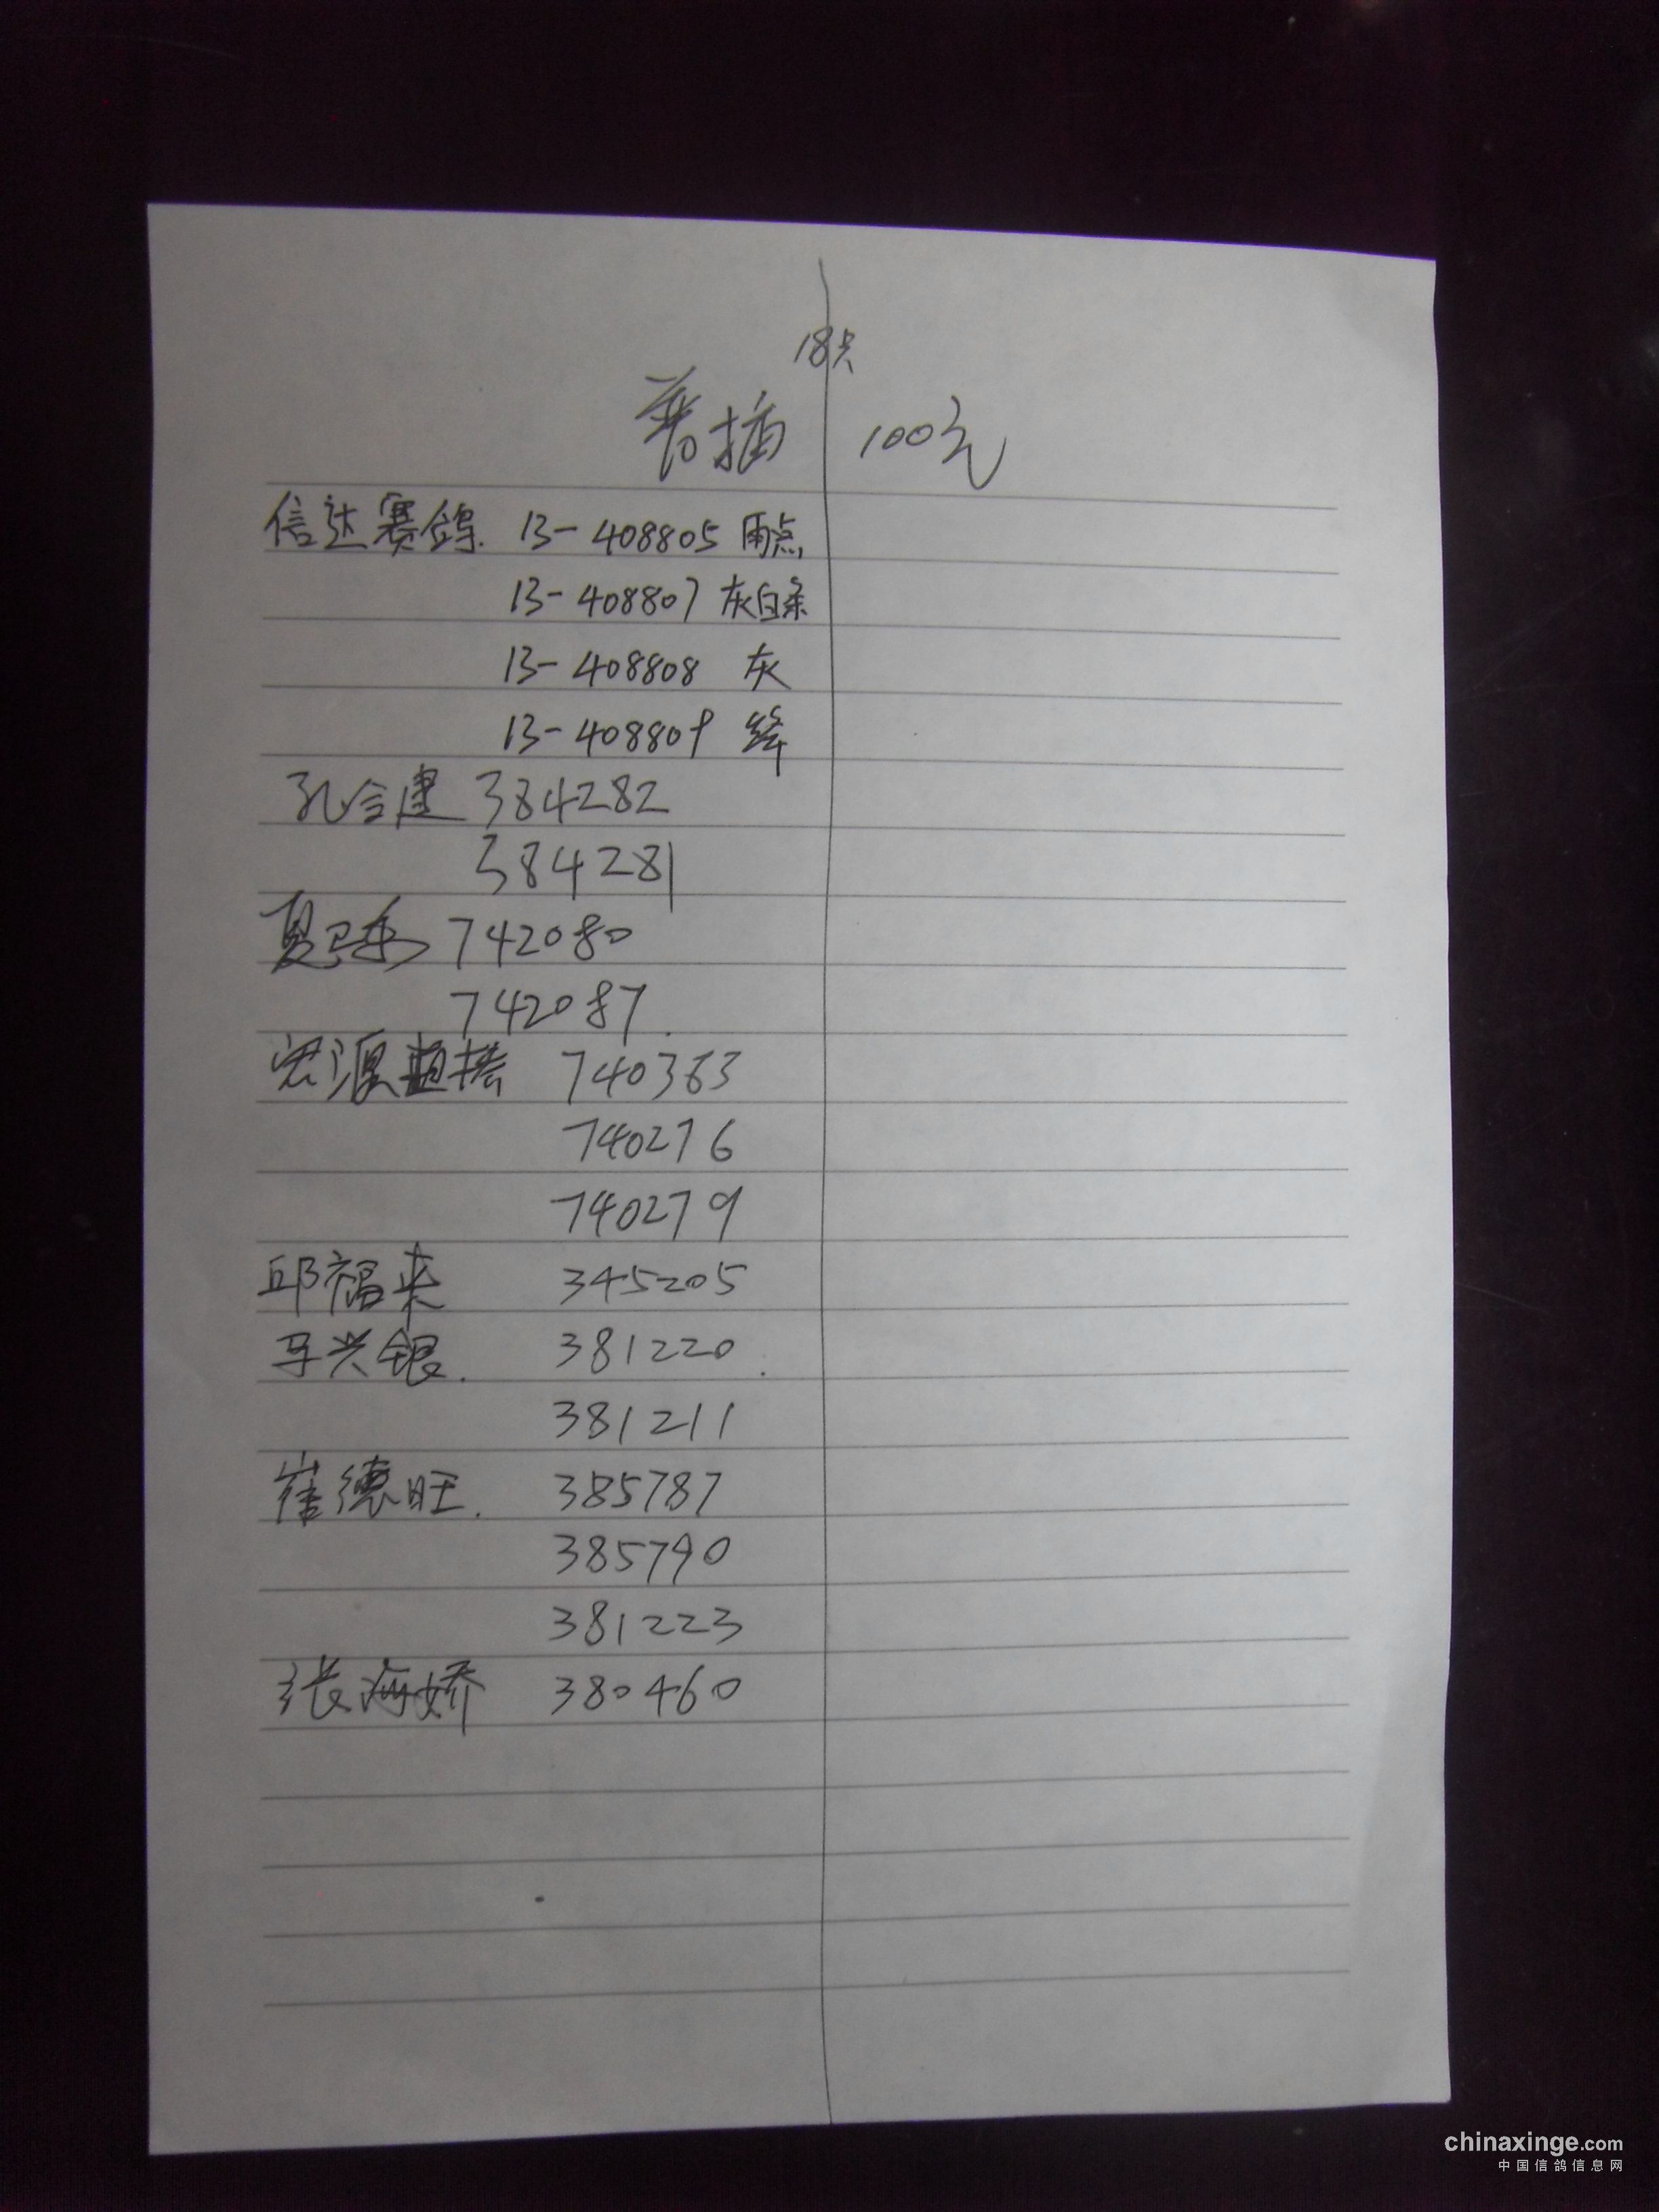 18只
普插 100元
信达赛鸽. 13-408805 雨点
13-408807 灰白条
13-408808 灰
13-408809 绛
孔令建 384282
384281
夏卫东 742080
742087.
宏源 740363
740276
740279
邱福来 345205
马兴银. 381220.
381211
崔德旺. 385787
385790
381223
张海娇 380460
chinaxinge.com
中国信鸽信息网